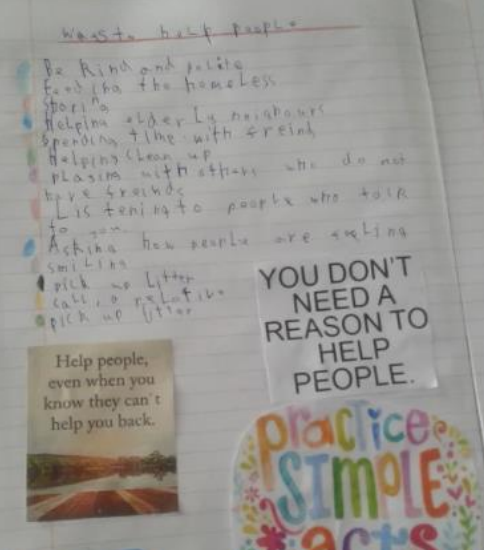 ways to help people
Be Kind and polite
feeding the homeless
Sharing
Helping elderly neighbours
Spending time with freind
Helping clean up
playing with others who do not
have freinds
Listening to people who talk
to you
Asking how people are feeling
smiling
pick up litter
call a relative
pick up litter
YOU DON'T
NEED A
REASON TO
HELP
PEOPLE.
Help people,
even when you
know they can't
help you back.
practice
SIMPLE
acts